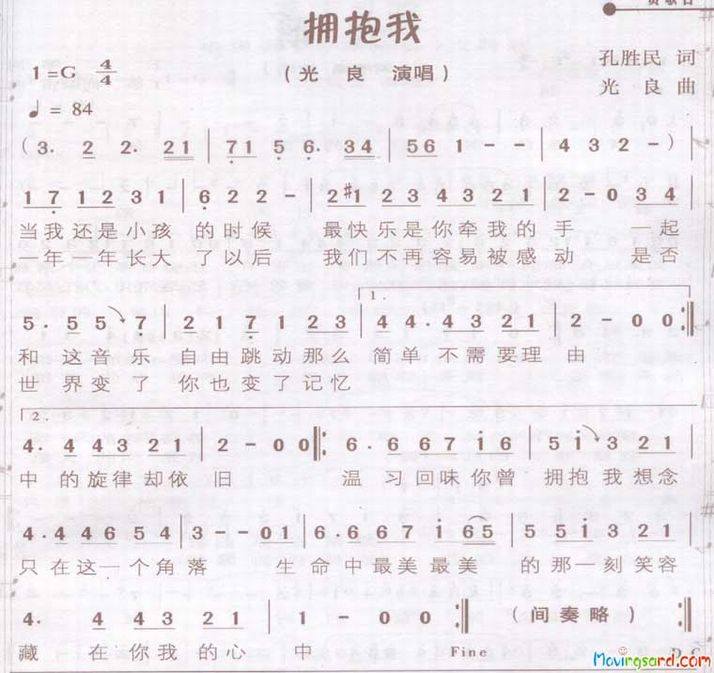 拥抱我
1=G 4/4
(光 良 演唱)
孔胜民 词
光 良 曲
♩= 84
(3. 2 2. 21 | 71 5 6. 34 | 561 1 - - | 432 - -)
1 7 1 2 3 1 | 6 2 2 - | 2 #1 2 3 4 3 2 1 | 2 - 0 3 4
当我还是小孩 的时候 最快乐是你牵我的 手 一起
一年一年长大 了以后 我们不再容易被感 动 是否
1.
5. 5 5 5 1 | 2 1 7 1 2 3 | 4 4. 4 3 2 1 | 2 - 0 0 :‖
和 这音乐 自由跳动那么 简单 不需要理 由
世 界变了 你也变了记忆
2.
4. 4 4 3 2 1 | 2 - 0 0 :‖: 6. 6 6 7 i 6 | 5 i 3 2 1
中 的旋律却依 旧 温 习回味你曾 拥抱我想念
4. 4 4 6 5 4 | 3 - - 0 1 | 6. 6 6 7 i 6 5 | 5 5 i 3 2 1
只 在这一个角 落 生 命中最美最美 的那一刻笑容
4. 4 4 3 2 1 | 1 - 0 0 :‖ (间奏略) :‖
藏 在你我的心 中 Fine D.C